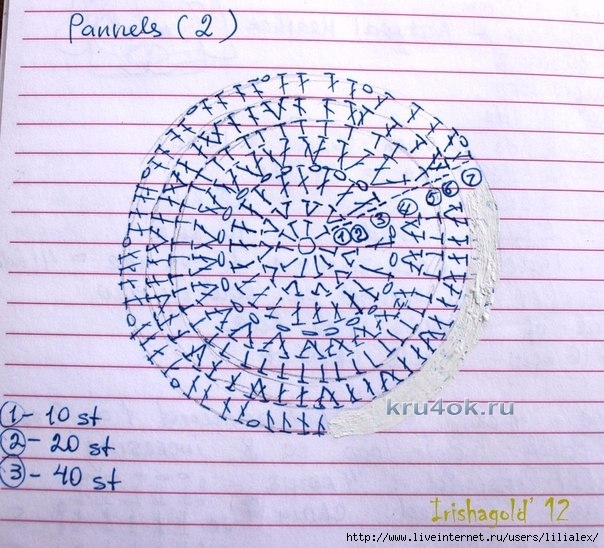 Pannels (2)
① ② ③ ④ ⑤ ⑥ ⑦
kru4ok.ru
① - 10 st
② - 20 st
③ - 40 st
Irishagold' 12
http://www.liveinternet.ru/users/lilialex/